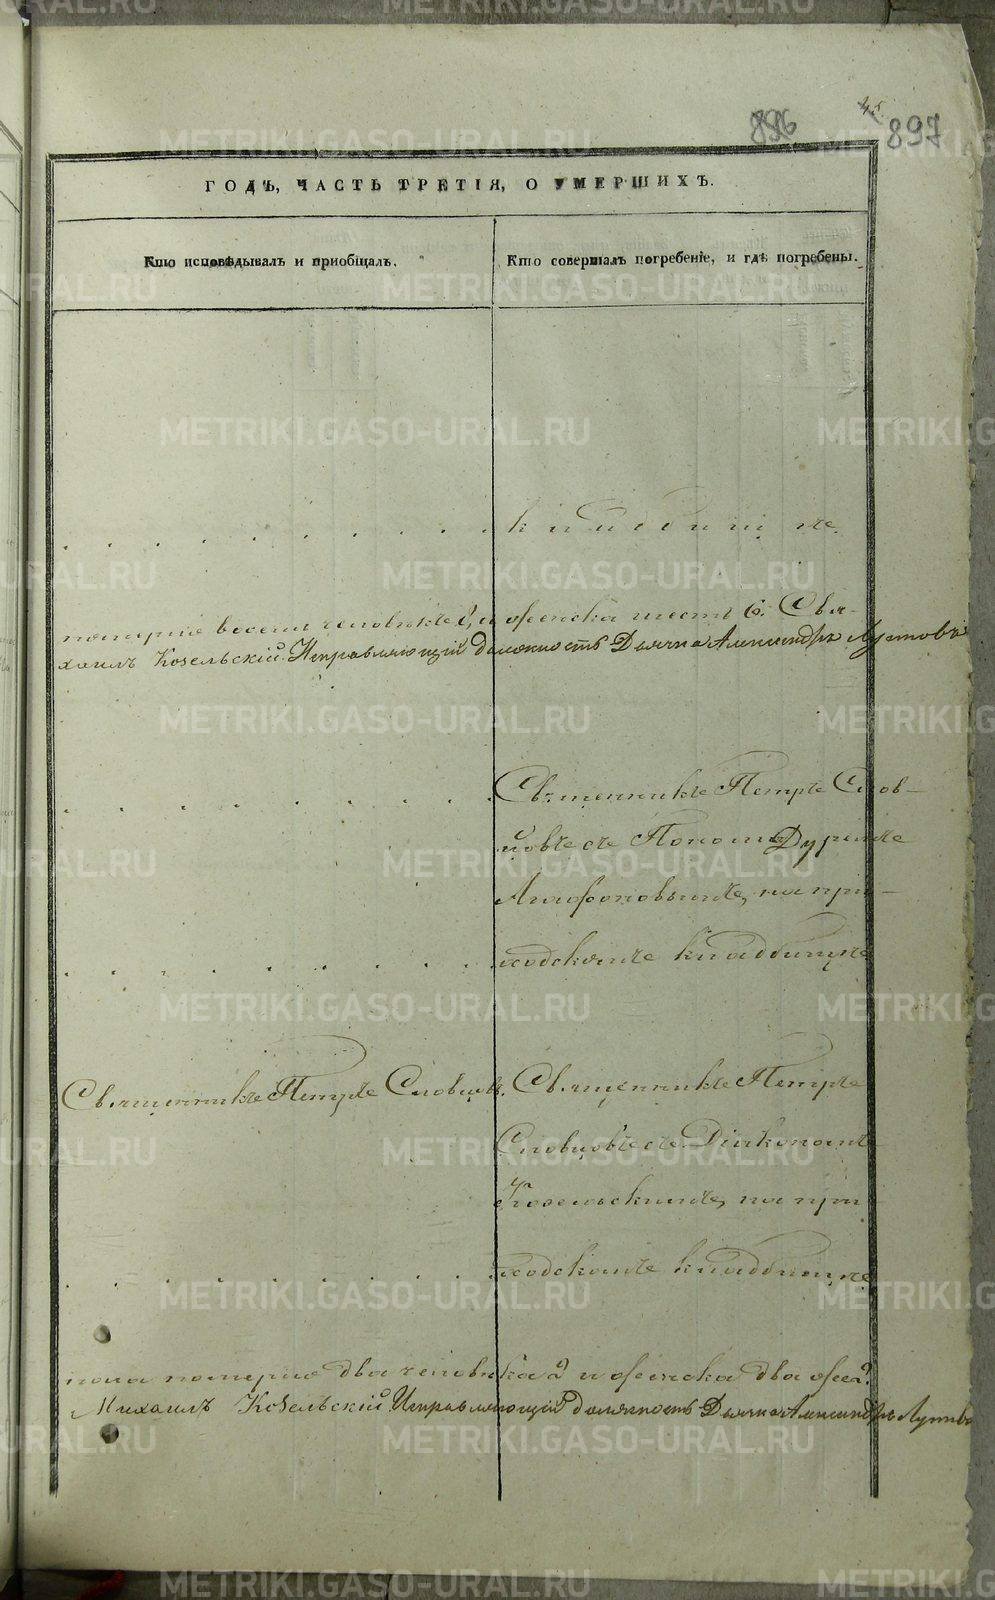 45
896 897
ГОДЪ, ЧАСТЬ ТРЕТІЯ, О УМЕРШИХЪ.
Кто исповѣдывалъ и пріобщалъ.
Кто совершалъ погребеніе, и гдѣ погребены.
кладбищѣ
померло восемь человѣкъ 8, и женска шесть 6. Свя-
хаилъ Козельскій. Исправляющій должность Дьячка Александръ
Священникъ Петръ Словъ-
цовъ съ Пономаремъ
на при-
ходскомъ кладбищѣ
Священникъ Петръ Словцовъ.
Священникъ Петръ
Словцовъ съ Діакономъ
Козельскимъ, на при-
ходскомъ кладбищѣ
пола померло два человѣка 2 и женска два же 2.
Михаилъ Козельскій. Исправляющій должность Дьячка Александръ
METRIKI.GASO-URAL.RU